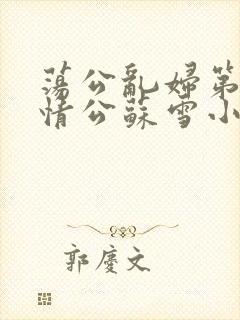 蕩公亂婦第
情公蘇雪小
郭慶文